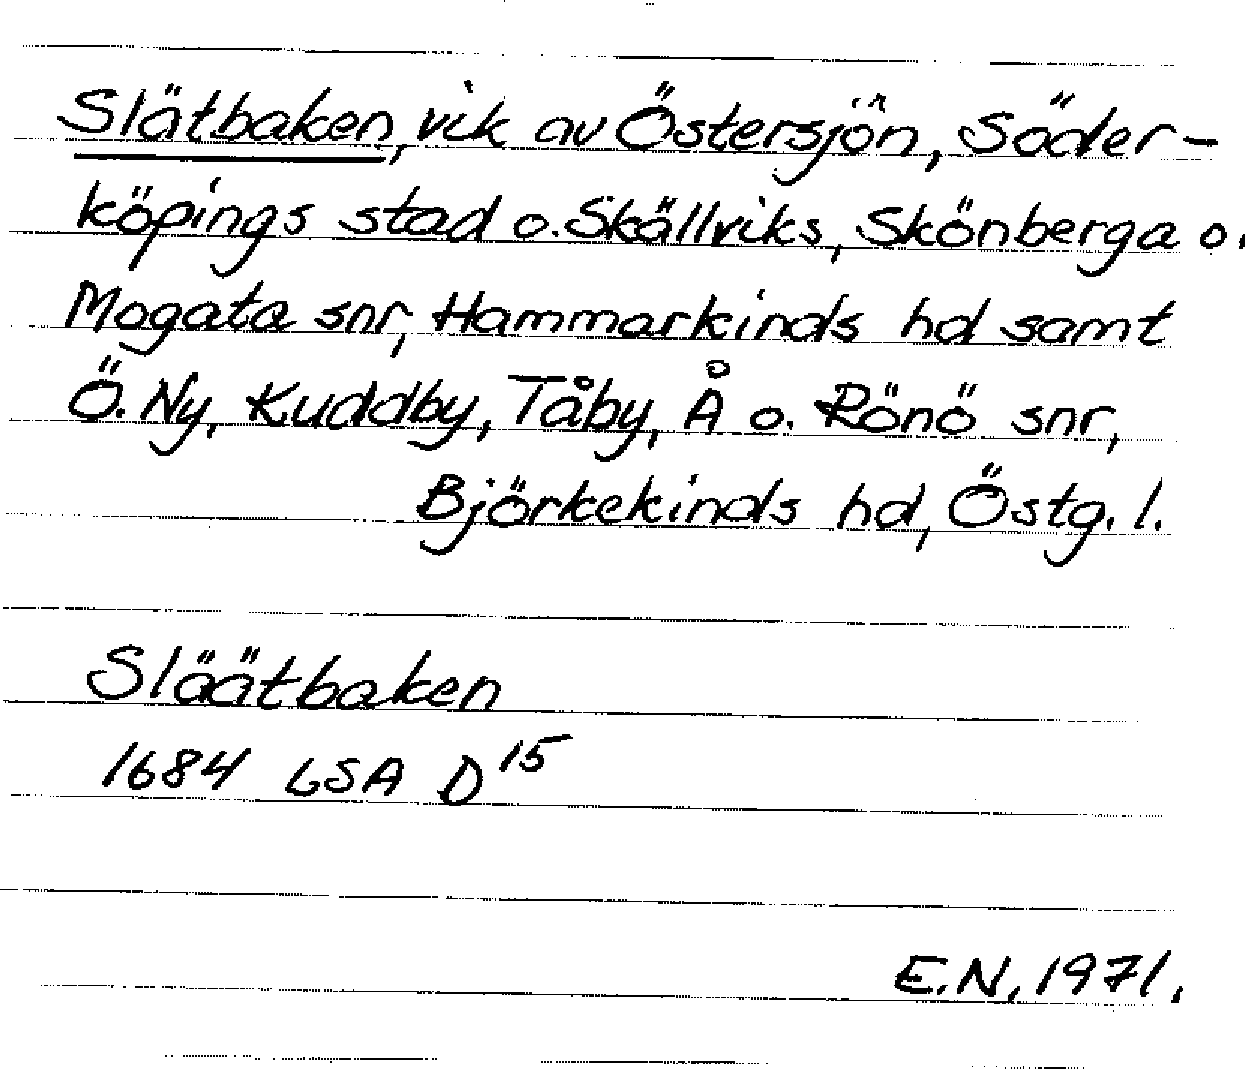 Slätbaken, vik av Östersjön, Söder-
köpings stad o. Skällviks, Skönberga o.
Mogata snr, Hammarkinds hd samt
Ö. Ny, Kuddby, Tåby, Å o. Rönö snr,
Björkekinds hd, Östg. l.
Släätbaken
1684 LSA D15
E.N, 1971.